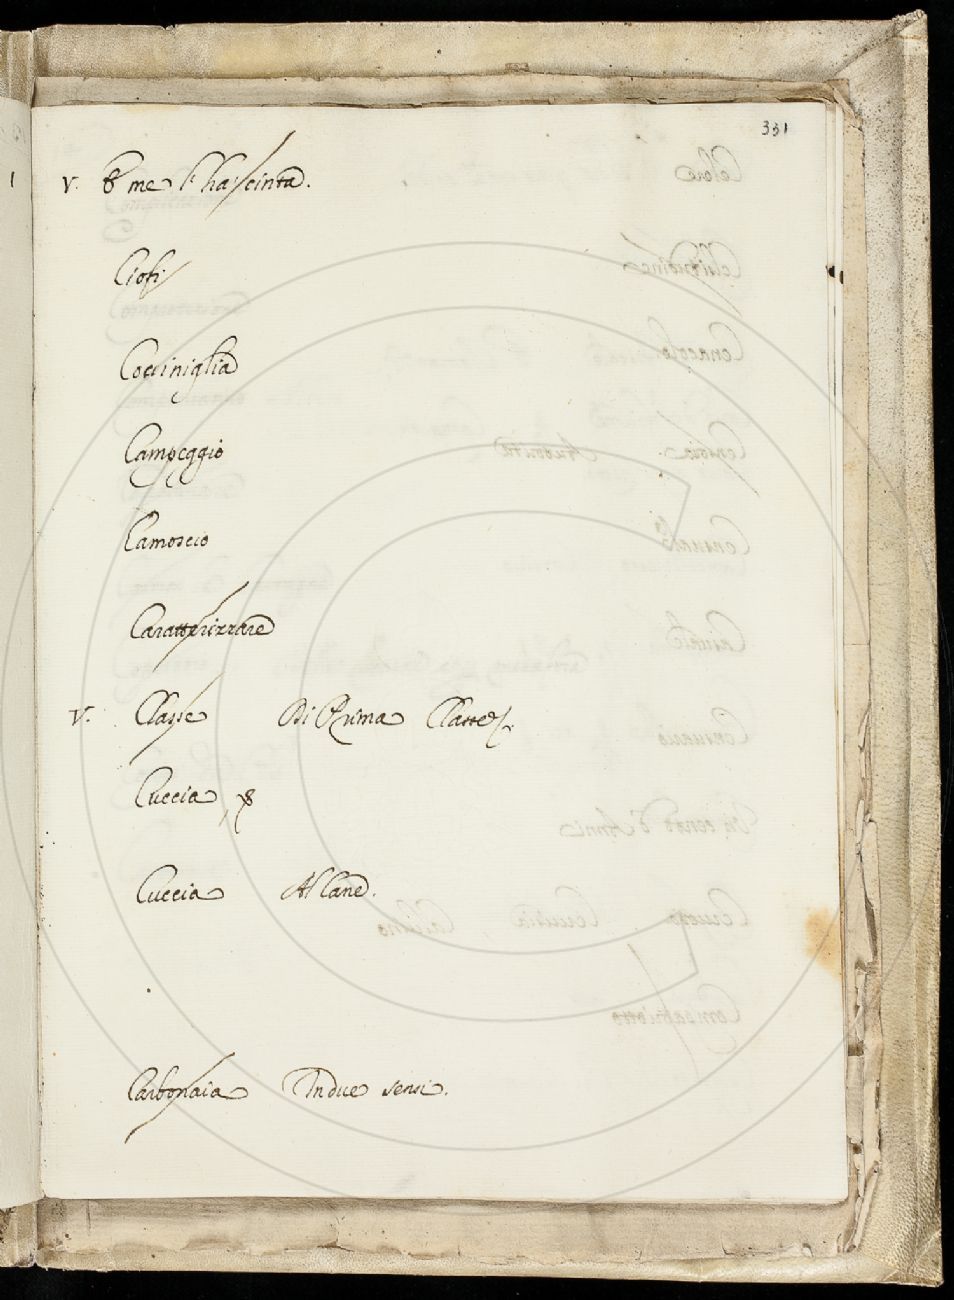 331
V. E me l'ha cinta.
Ciofi
Cocciniglia
Campeggio
Camoscio
Caratterizzare
V. Classe Di Prima Classe
Cuccia
Cuccia Al Cane.
Carbonaia In due sensi.